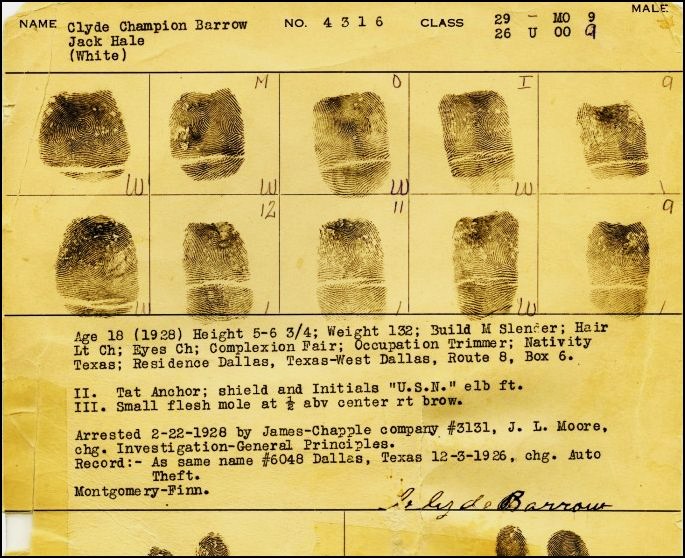 MALE
NAME Clyde Champion Barrow NO. 4316 CLASS 29 - MO 9
Jack Hale 26 U OO 9
(White)
M O I 9
W W W W \
12 11 9
W \ \ W \
Age 18 (1928) Height 5-6 3/4; Weight 132; Build M Slender; Hair
Lt Ch; Eyes Ch; Complexion Fair; Occupation Trimmer; Nativity
Texas; Residence Dallas, Texas-West Dallas, Route 8, Box 6.
II. Tat Anchor; shield and Initials "U.S.N." elb ft.
III. Small flesh mole at ½ abv center rt brow.
Arrested 2-22-1928 by James-Chapple company #3131, J. L. Moore,
chg. Investigation-General Principles.
Record:- As same name #6048 Dallas, Texas 12-3-1926, chg. Auto
Theft.
Montgomery-Finn.
Clyde Barrow